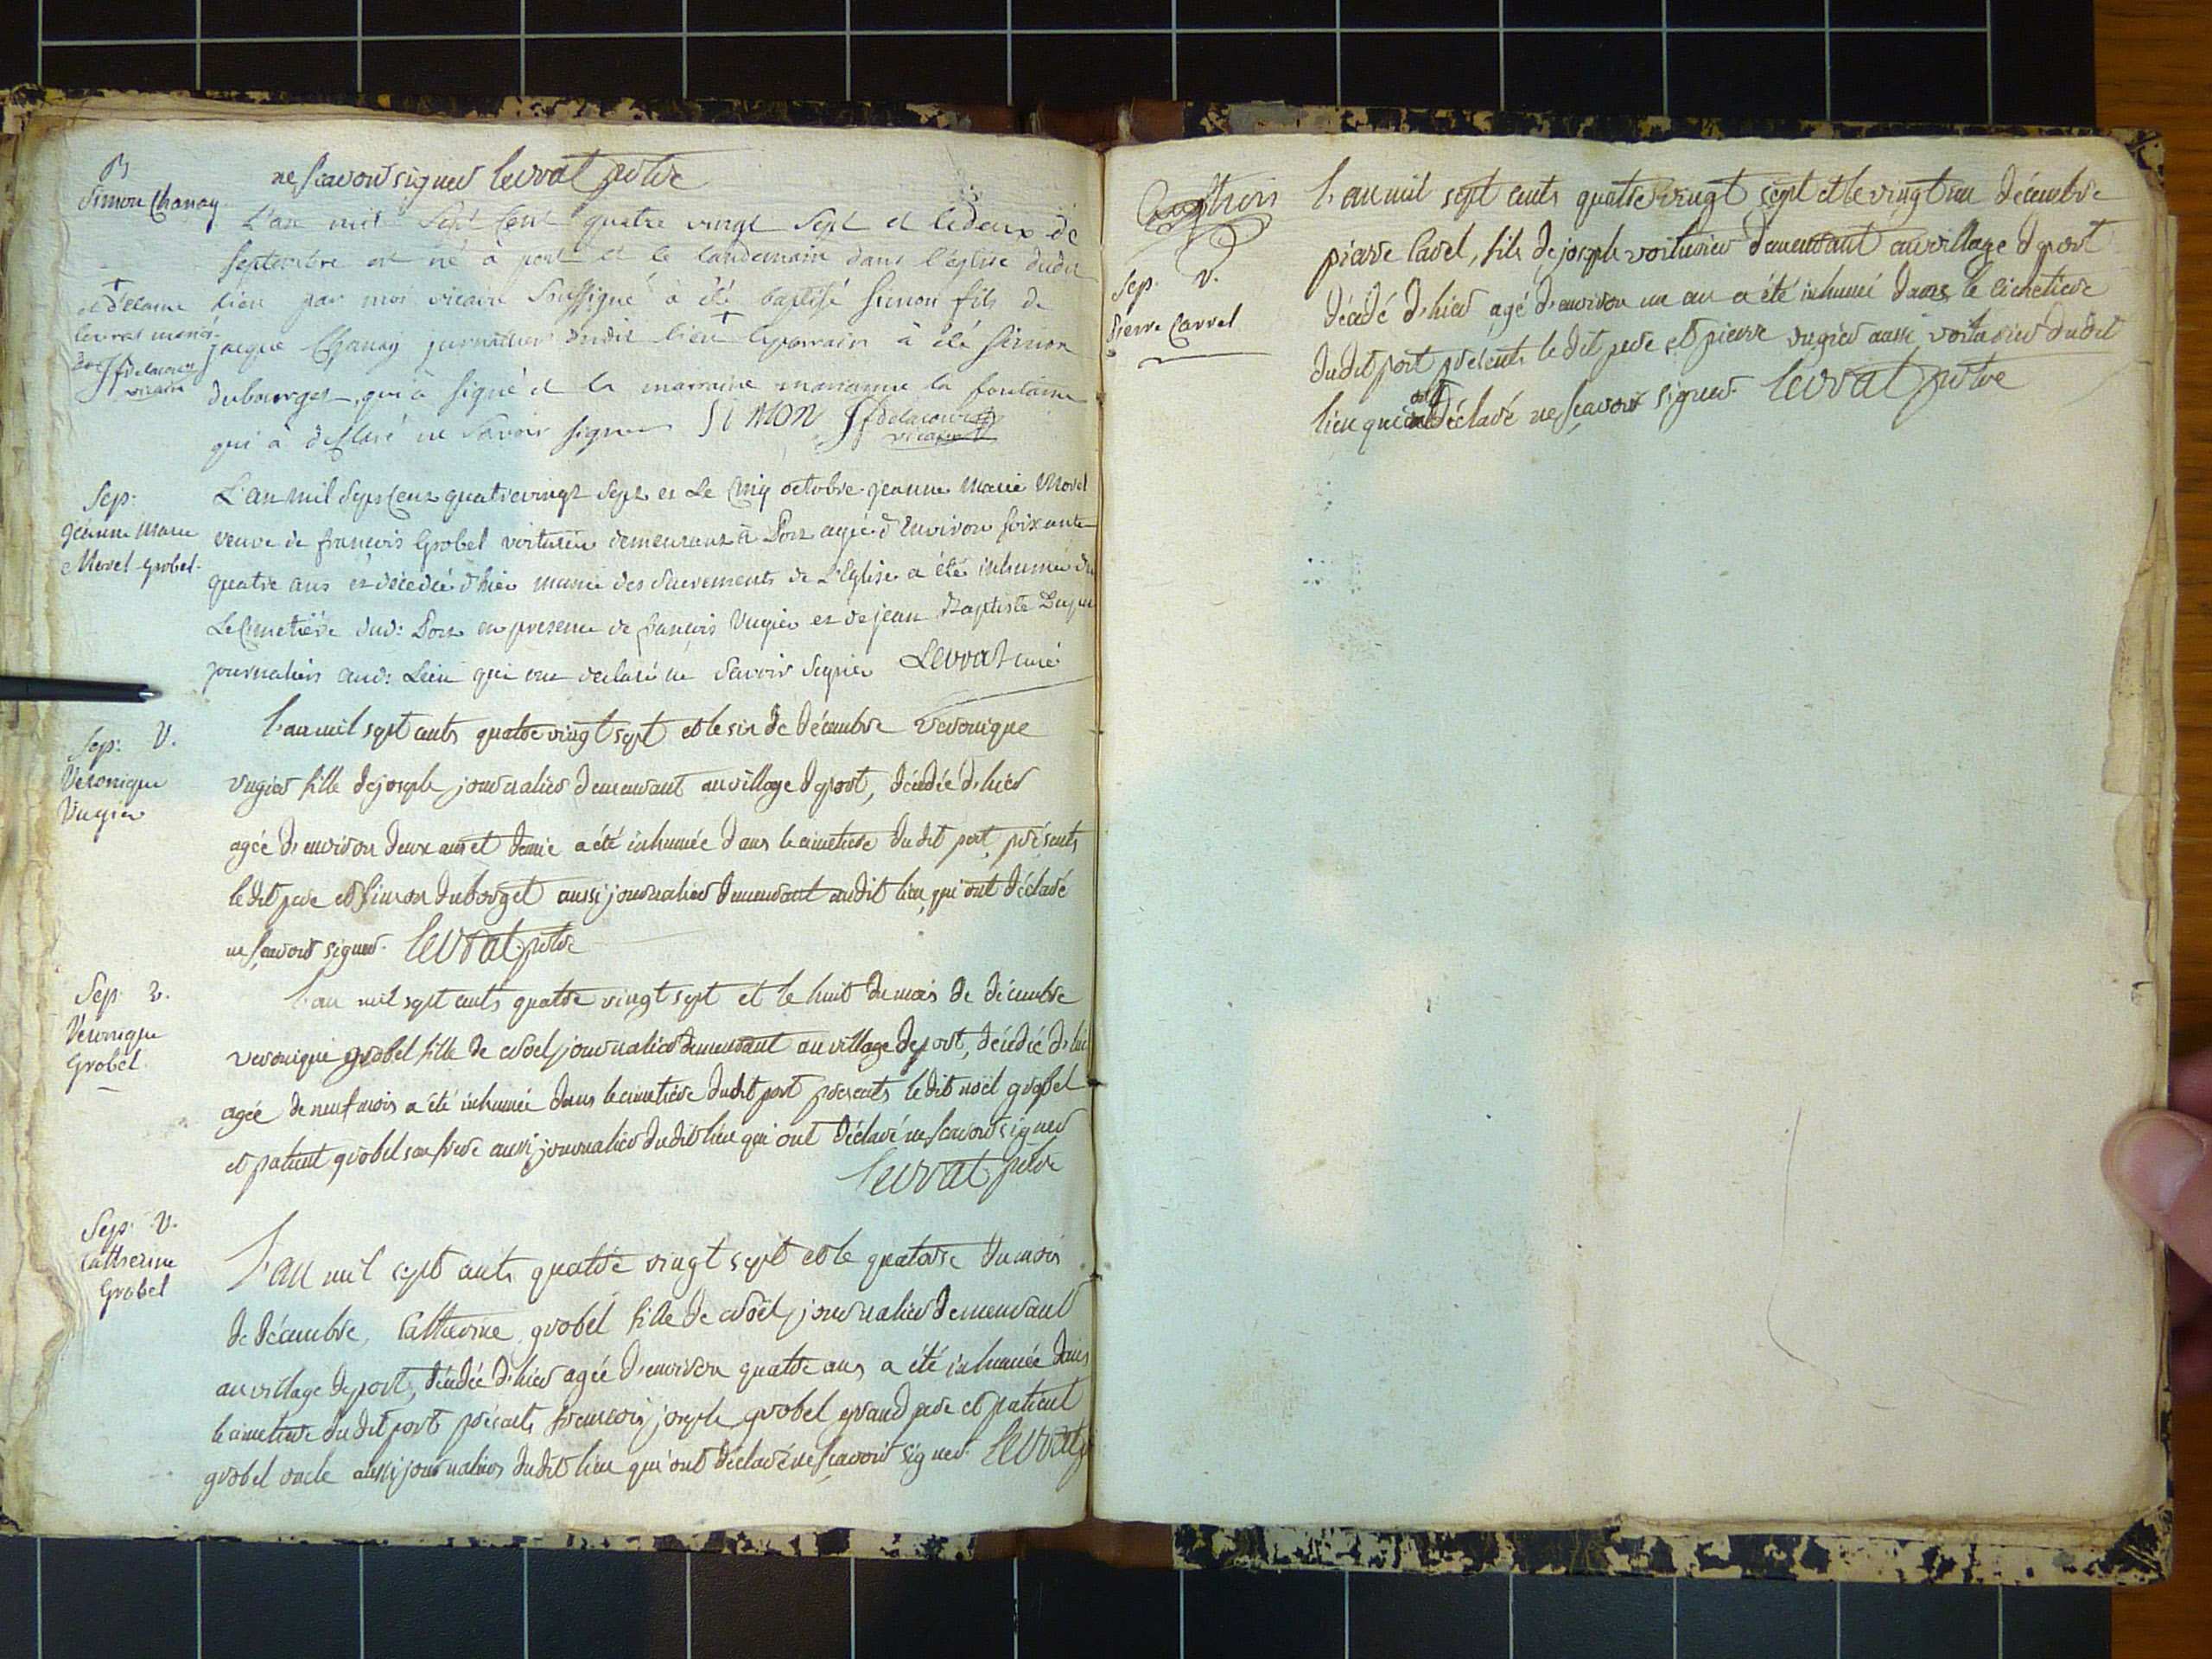 ne scavoir signer Levrat prêtre
B
Simon Chanay
L'an mil sept cent quatre vingt sept et le deux de
septembre est né a port et le landemain dans l'église dudit
lieu par moi vicaire soussigné à été baptisé simon fils de
jacque Chanay journallier dudit lieu + le parrain à été simon
dubourget, qui à signé et la marraine marianne la fontaine
qui à desclaré ne savoir signer SIMON J f delacour
vicaire
+
et d'etiene
levrat
vicaire
Sep:
Jeanne Marie
Morel Grobel
L'an mil sept cent quatrevingt sept et le cinq octobre jeanne Marie Morel
veuve de françois Grobel voiturier demeurant à Port agée d'environ soixante
quatre ans et décédée d'hier munie des sacrements de L'Eglise a été inhumée
Le Cimetière dud: Port en presence de françois Vugier et de jean Baptiste
journaliers aud: Lieu qui ont declaré ne savoir signer Levrat curé
Sep: V.
Véronique
Vugier
L'an mil sept cents quatre vingt sept et le six de décembre veronique
vugier fille de joseph journalier demeurant au village de port, décédée d'hier
agée d'environ deux ans et demie a été inhumée dans le cimetiere du dit port, présents
le dit pere et simon duborget aussi journalier demeurant audit lieu, qui ont déclaré
ne scavoir signer. Levrat prêtre
Sep: v.
Véronique
Grobel
L'an mil sept cents quatre vingt sept et le huit du mois de décembre
veronique grobel fille de noel journalier demeurant au village de port, décédée d'hier
agée de neuf mois a été inhumée dans le cimetière dudit port presents le dit noël grobel
et patient grobel son frere aussi journalier dudit lieu qui ont déclaré ne scavoir signer
Levrat prêtre
Sep: V.
Catherine
Grobel
L'an mil sept cents quatre vingt sept et le quatorse du mois
de décembre, Catherine grobel fille de noël journalier demeurant
au village de port, décédée d'hier agée d'environ quatre ans a été inhumée dans
le cimetiere du dit port présents francois joseph grobel grand pere et patient
grobel oncle aussi journaliers dudit lieu qui ont déclaré ne scavoir signer. Levrat p
Sep. V.
Pierre Carrel
L'an mil sept cents quatre vingt sept et le vingt un décembre
pierre Carel, fils de joseph voiturier demeurant au village de port
décédé d'hier agé d'environ un an a été inhumé dans le cimetiere
dudit port présents le dit pere et pierre vugier aussi voiturier dudit
lieu qui ont déclaré ne scavoir signer. Levrat prêtre